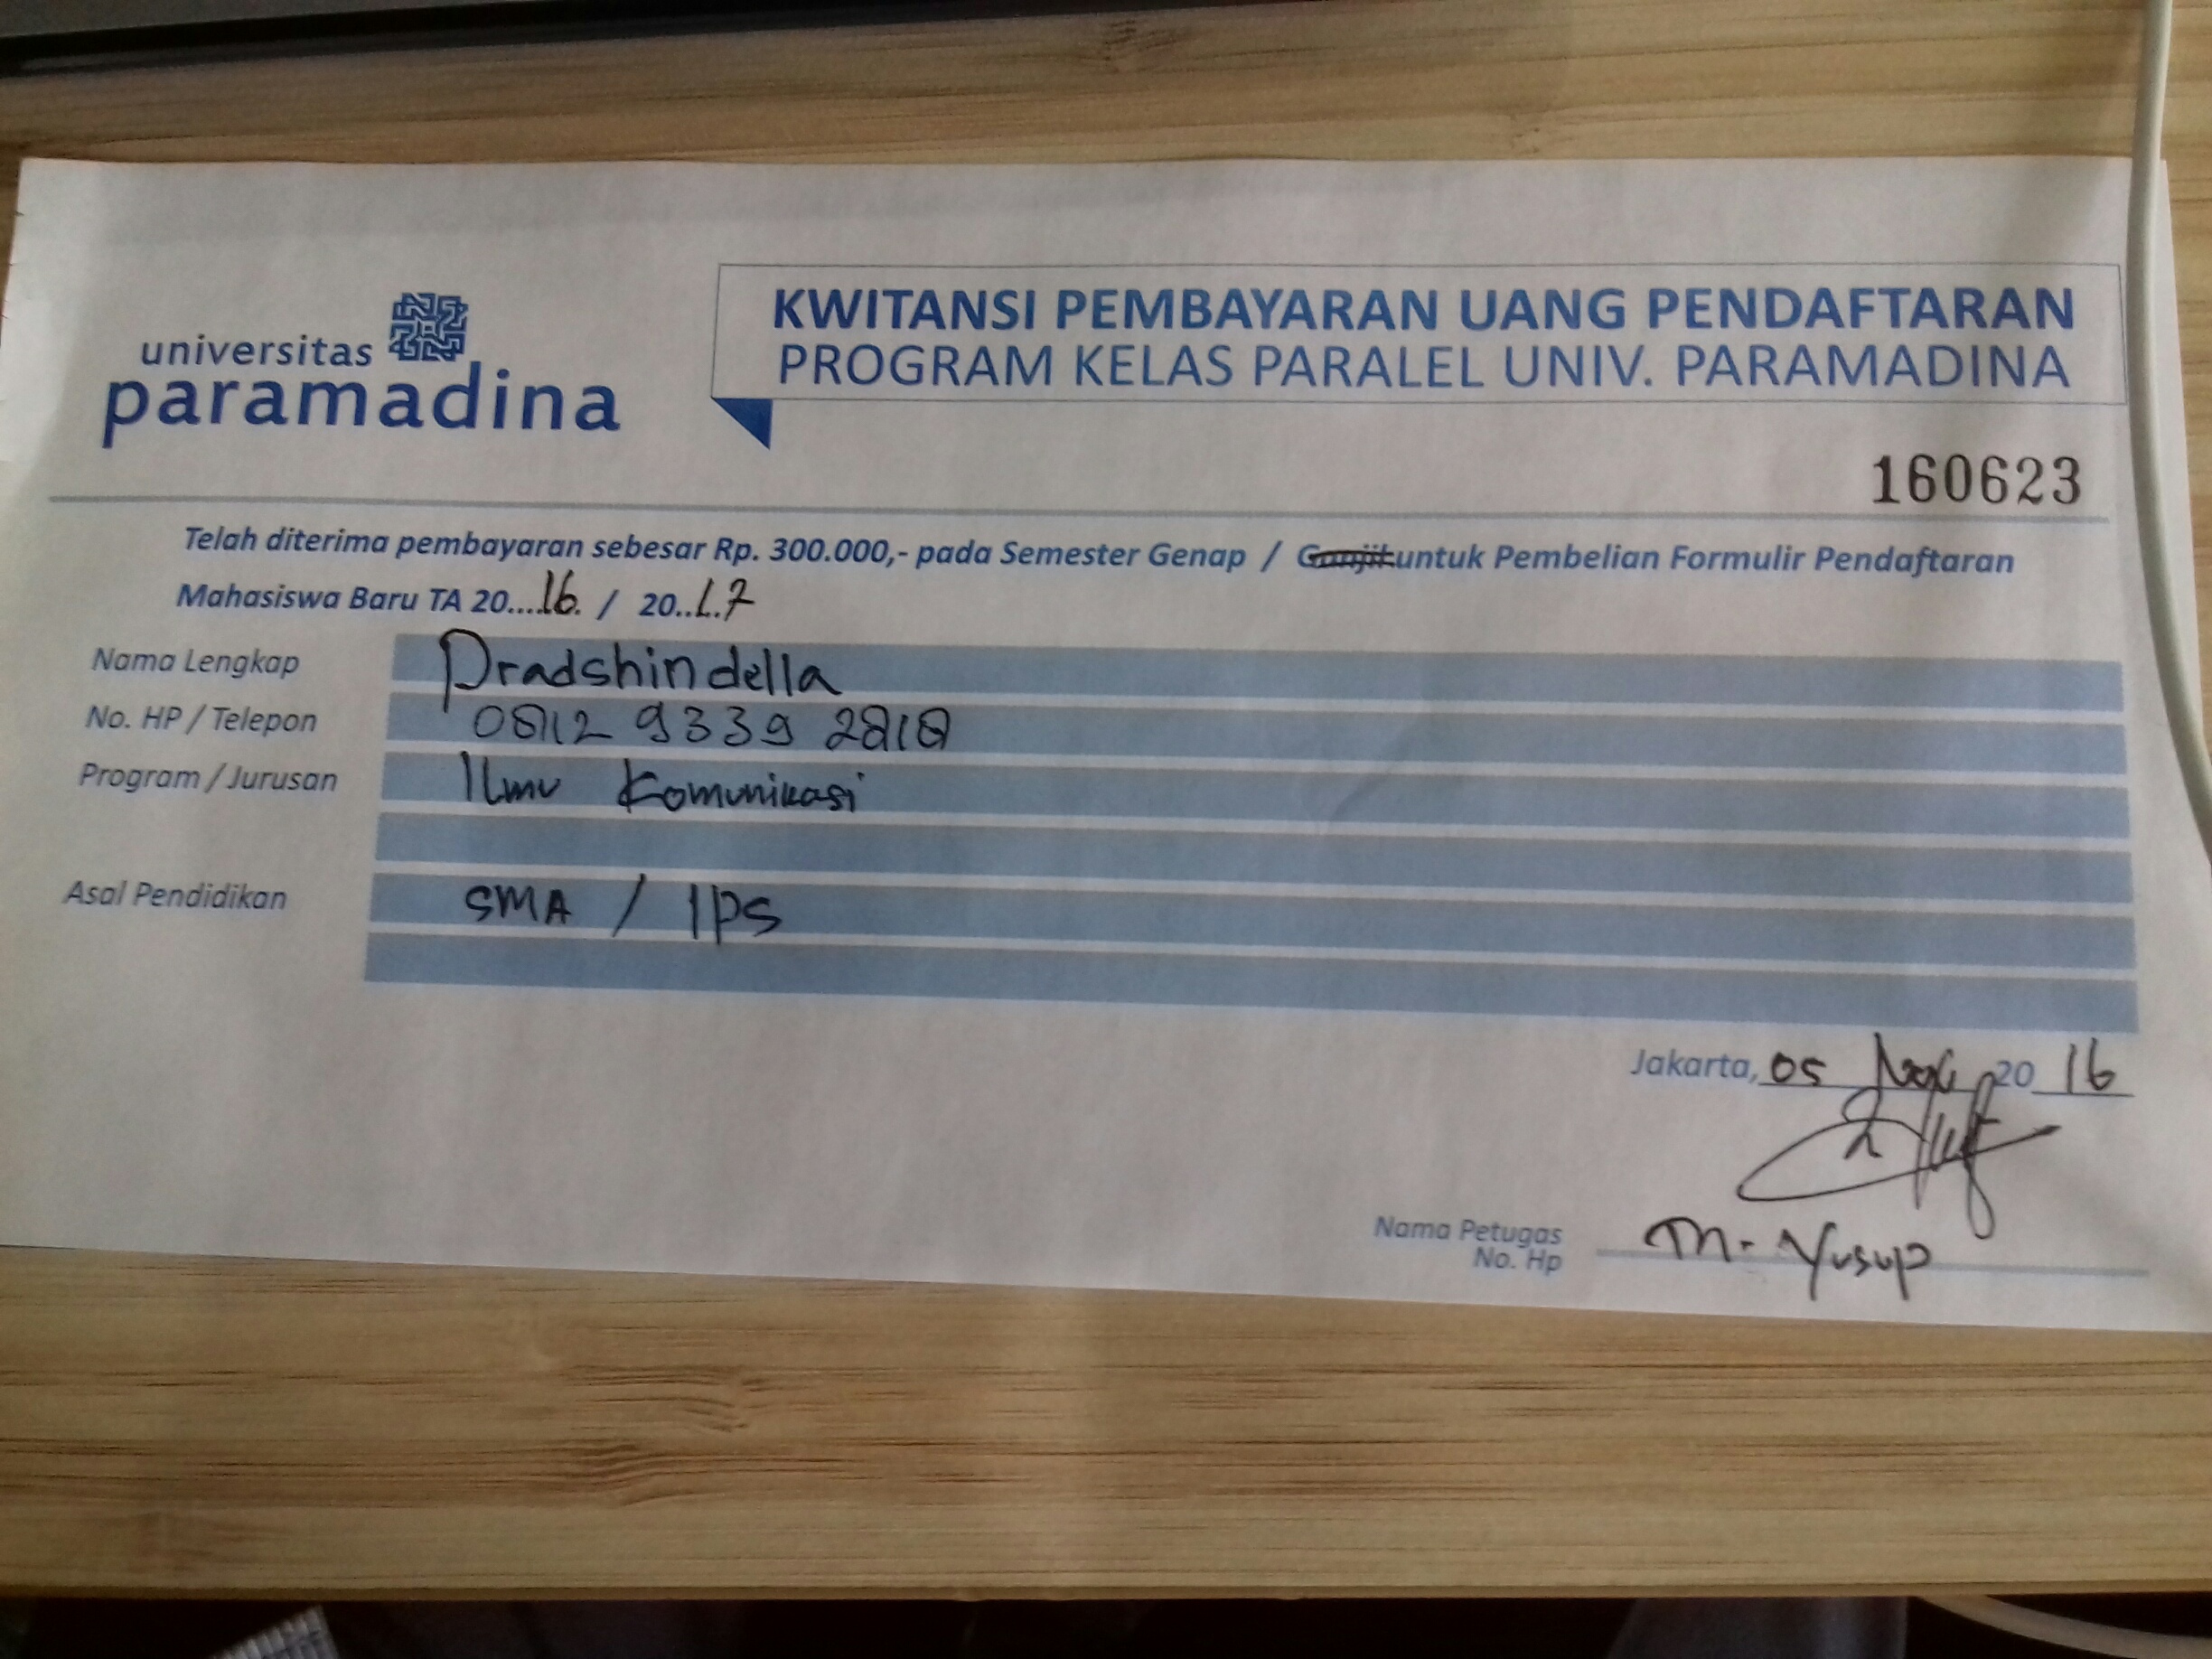 universitas
paramadina
KWITANSI PEMBAYARAN UANG PENDAFTARAN
PROGRAM KELAS PARALEL UNIV. PARAMADINA
160623
Telah diterima pembayaran sebesar Rp. 300.000,- pada Semester Genap / Ganjil untuk Pembelian Formulir Pendaftaran
Mahasiswa Baru TA 20....16. / 20..1.7
Nama Lengkap Pradshindella
No. HP / Telepon 0812 9339 2818
Program / Jurusan Ilmu Komunikasi
Asal Pendidikan SMA / IPS
Jakarta, 05 20 16
Nama Petugas M. Yusup
No. Hp